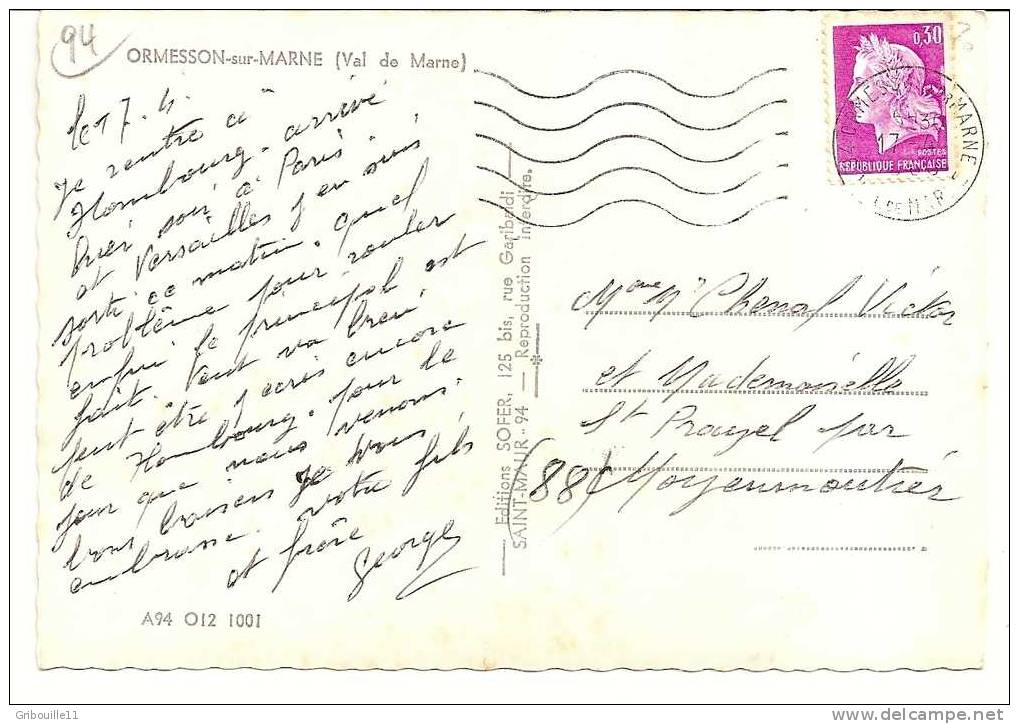 94
ORMESSON-sur-MARNE (Val de Marne)
le 17. 4.
Je rentre à
Hombourg. arrivé
hier soir à Paris.
et Versailles j'en suis
sorti ce matin. quel
problème pour rouler
enfin le principal est
fait. tout va bien.
peut être j'écris encore
de Hombourg. pour le
jour que nous venons.
bons baisers je vous
embrasse. votre fils
et frère
Georges
A94 O12 1001
Editions SOFER, 125 bis, rue Garibaldi
SAINT-MAUR - 94 — Reproduction interdite.
0,30
POSTES
REPUBLIQUE FRANÇAISE
MARNE
17
Mme Mr Chenal Victor
et Mademoiselle
St Prayel par
(88) Moyenmoutier
Gribouille11
www.delcampe.net